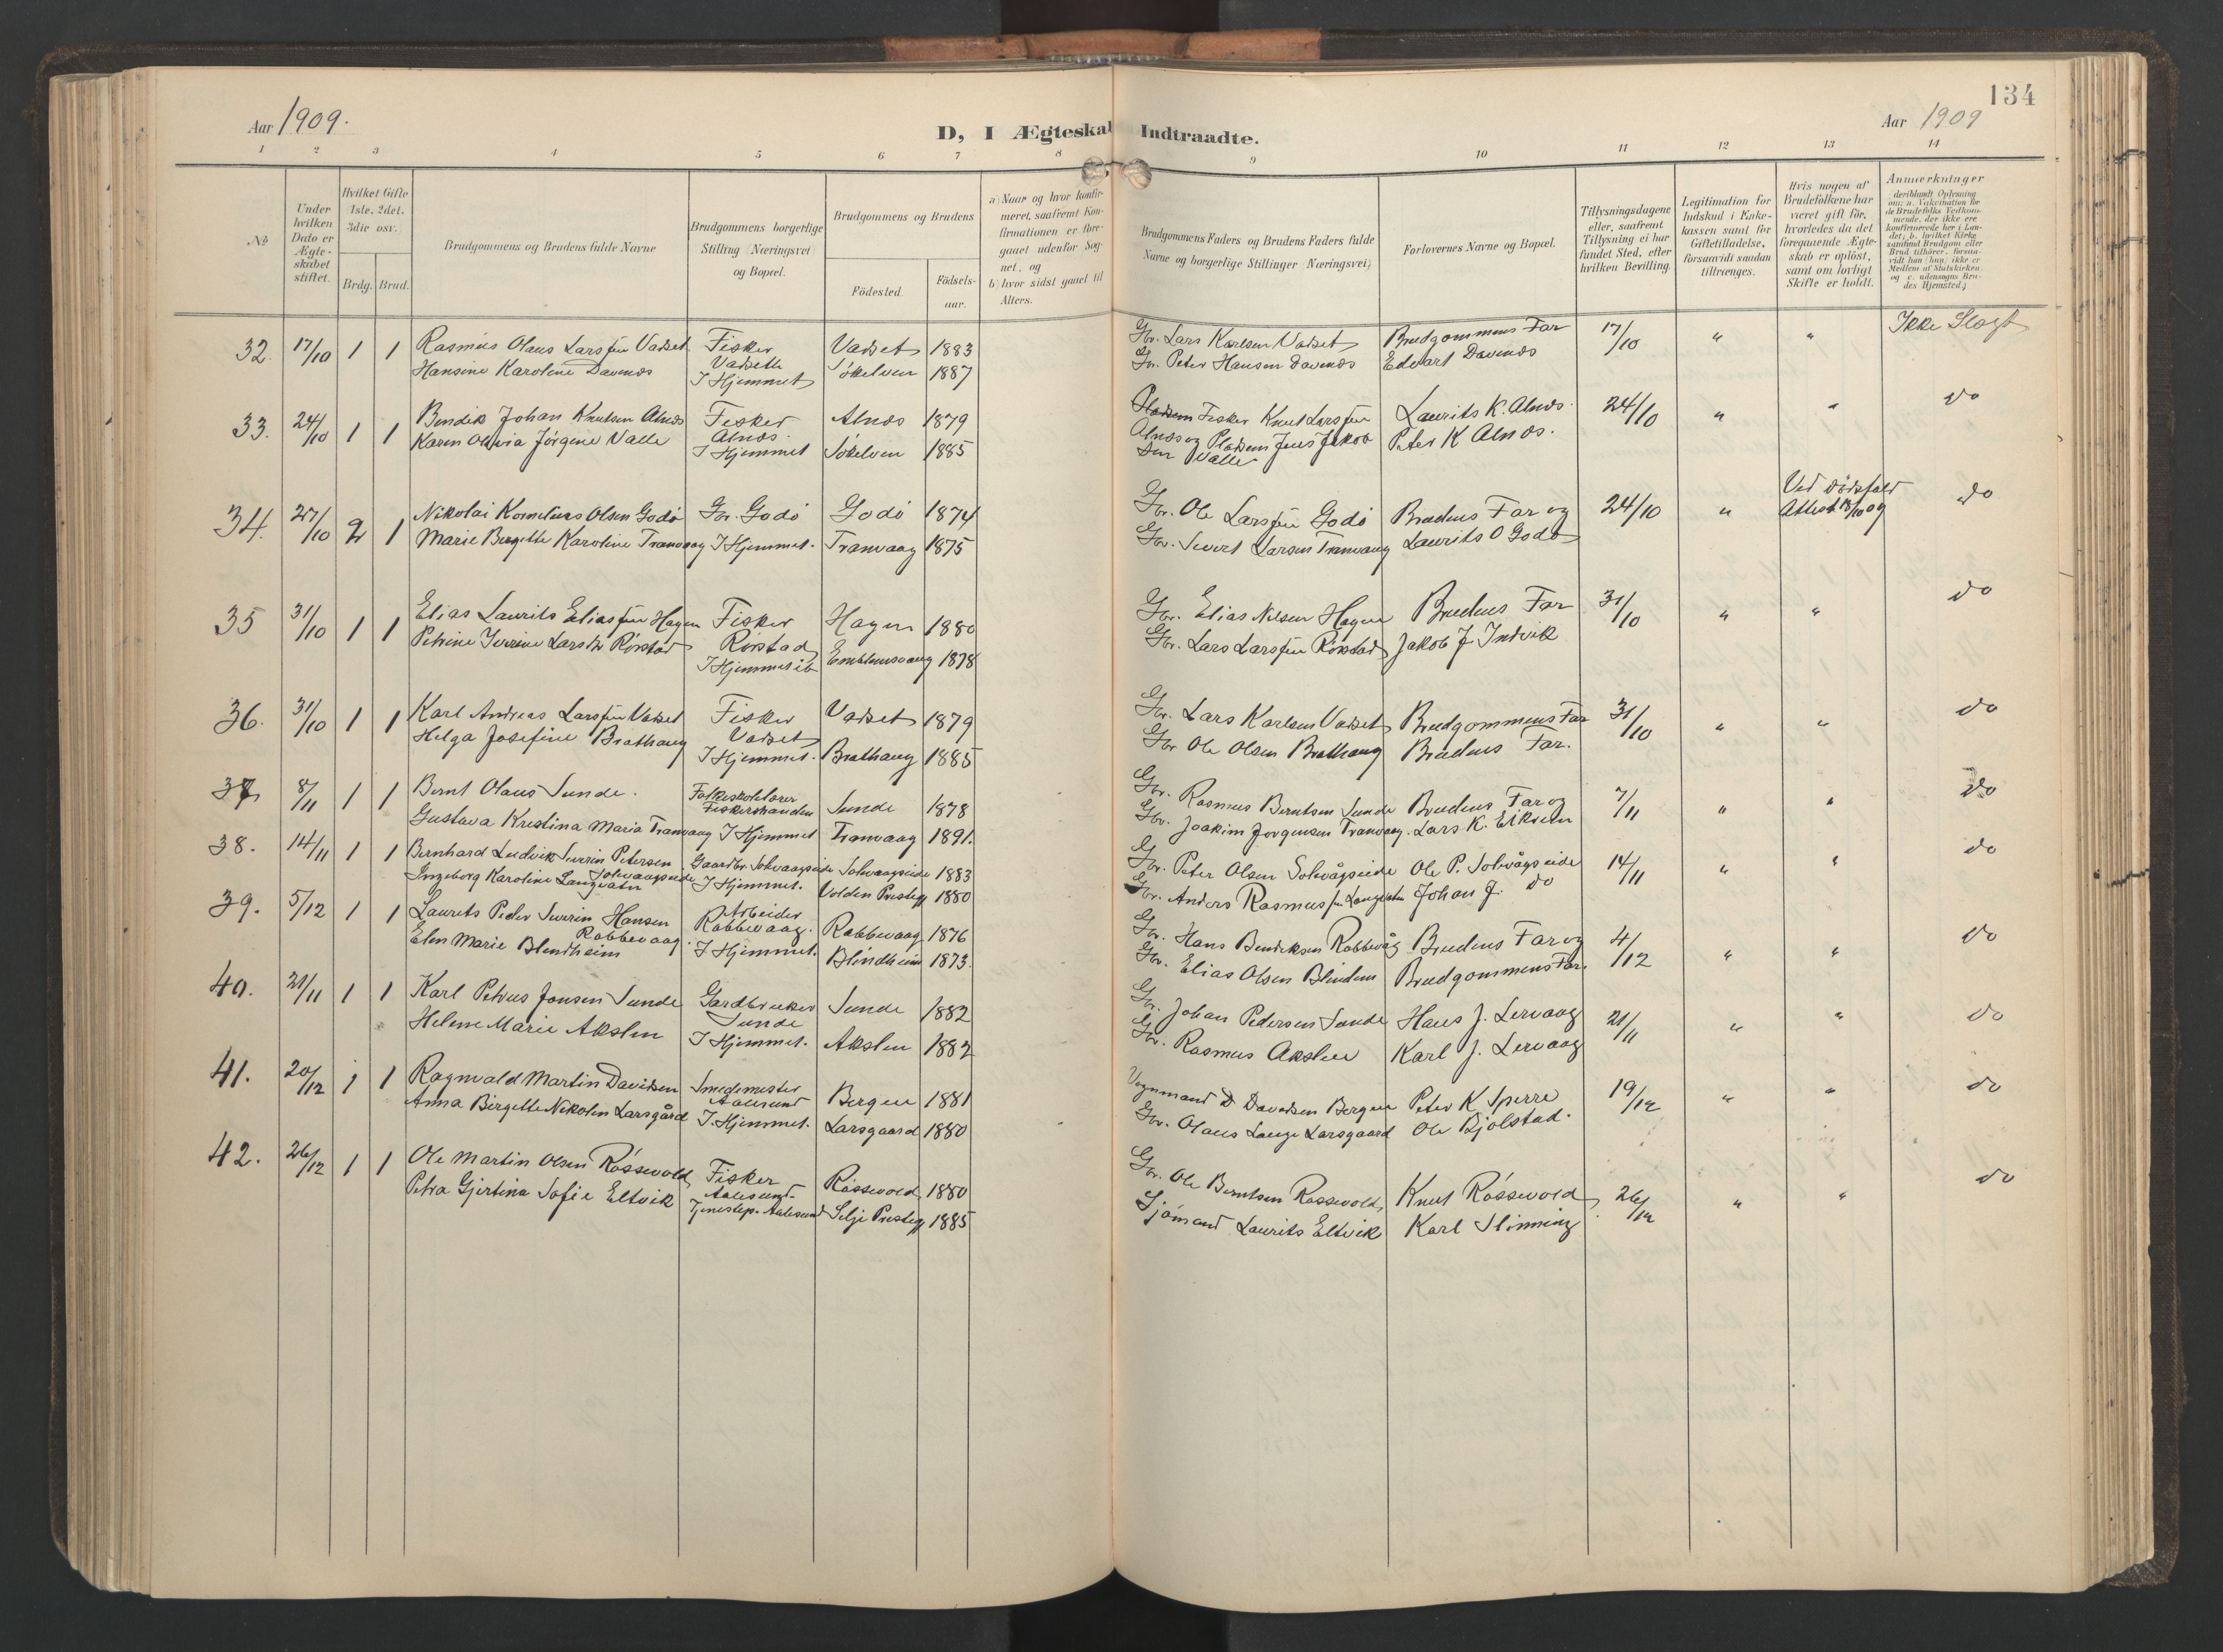 134
Aar 1909.
Aar 1909
D, I Ægteskab Indtraadte.
1 2 3 4 5 6 7 8 9 10 11 12 13 14
No
Under hvilken Dato er Ægteskabet stiftet.
Hvilket Gifte 1ste, 2det, 3die osv.
Brdg. Brud.
Brudgommens og Brudens fulde Navne
Brudgommens borgerlige Stilling (Næringsvei) og Bopæl.
Brudgommens og Brudens
Födested.
Födselsaar.
a) Naar og hvor konfirmeret, saafremt Konfirmationen er foregaaet udenfor Sognet, og
b) hvor sidst gaaet til Alters.
Brudgommens Faders og Brudens Faders fulde Navne og borgerlige Stillinger (Næringsvei)
Forlovernes Navne og Bopæl.
Tillysningsdagene eller, saafremt Tillysning ei har fundet Sted, efter hvilken Bevilling.
Legitimation for Indskud i Enkekassen samt for Giftetilladelse, forsaavidt saadan tiltrænges.
Hvis nogen af Brudefolkene har været gift för, hvorledes da det foregaaende Ægteskab er oplöst, samt om lovligt Skifte er holdt.
Anmerkninger
32. 17/10 1 1 Rasmus Olaus Larssen Vadset Fisker Vadset 1883 Gbr. Lars Karlsen Vadset Brudgommens Far 17/10 " " Ikke Slægt
Hansine Karoline Davenes Vadseth I Hjemmet Sökelven 1887 Gbr. Peter Hansen Davenes Edvart Davenes
33. 24/10 1 1 Bendik Johan Knutsen Alnes Fisker Alnes 1879 Fisker Knut Larssen Laurits K. Alnes. 24/10 " " do
Karen Oliva Jörgine Valle Alnes. I Hjemmet Sökelven 1885 Alnes og Pladsm Jens Jakob Peter K Alnes.
sen Valle
34. 27/10 2 1 Nikolai Kornelius Olsen Godö Gbr. Godö Godö 1874 Gbr. Ole Larssen Godö Brudens Far og 24/10 " Ved dödsfald do
Marie Bergitte Karoline Tranvaag I Hjemmet. Tranvaag 1875 Gbr. Sivert Larsen Tranvaag Laurits O Godö
35 31/10 1 1 Elias Laurits Eliassen Hagen Fisker Hagen 1880 Gbr. Elias Nilsen Hagen Brudens Far 31/10 " " do
Petrine Iverine Larsdtr Rörstad Rörstad I Hjemmet Emblemsvaag 1878 Gbr. Lars Larssen Rörstad Jakob J Indvik
36. 31/10 1 1 Karl Andreas Larssen Vadset Fisker Vadset 1879 Gbr. Lars Karlsen Vadset Brudgommens Far 31/10 " " do
Helga Josefine Brathaug Vadset I Hjemmet. Brathaug 1885 Gbr Ole Olsen Brathaug Brudens Far.
37 8/11 1 1 Bernt Olaus Sunde. Folkeskolelærer Sunde 1878 Gbr. Rasmus Berntsen Sunde Brudens Far og 7/11 " " do
Gustava Kristina Maria Tranvaag I Hjemmet Tranvaag 1891. Gbr. Joakim Jorgensen Tranvaag. Lars K.
38. 14/11 1 1 Bernhard Ludvik Severin Petersen Solevaagseide Gaardbr. Solevaagseide Solevaagseide 1883 Gbr. Peter Olsen Solevågseide Ole P. Solevågseide 14/11 " " do
Ingeborg Karoline Langvatn I Hjemmet. Volden Prestegj 1880 Gbr. Anders Rasmussen Langvatn Johan J. do
39. 5/12 1 1 Laurits Peder Severin Hansen Rabbevaag. Arbeider Rabbevaag. Rabbevaag 1876 Gbr. Hans Bendiksen Rabbevåg Brudens Far og 4/12 " " do
Elen Marie Blindheim I Hjemmet. Blindheim 1873. Gbr. Elias Olsen Blindem Brudgommens Far.
40. 21/11 1 1 Karl Petrus Jonsen Sunde Gardbruker Sunde 1882 Gbr. Johan Pedersen Sunde Hans J. Lervaag 21/11 " " do
Helene Marie Akslen Sunde I Hjemmet. Akslen 1882 Gbr. Rasmus Akslen Karl J. Lervaag
41. 20/12 1 1 Ragnvald Martin Davidsen Smedemester Bergen 1881 Vognmand D Davidsen Bergen Peter K Sperre 19/12 " " do
Anna Birgitte Nikolin Larsgård Aalesund I. Hjemmet. Larsgaard 1880 Gbr. Olaus Lauge Larsgaard Ole Bjölstad.
42. 26/12 1 1 Ole Martin Olsen Rössevold Fisker Rössevold 1880 Gbr. Ole Berntsen Rossevold, Knut Rössevold 26/12 " " do
Petra Gjertina Sofie Eltvik Aalesund. Tjenestep. Aalesund Selje Prestegj 1885 Sjömand Laurits Eltvik Karl Slinning